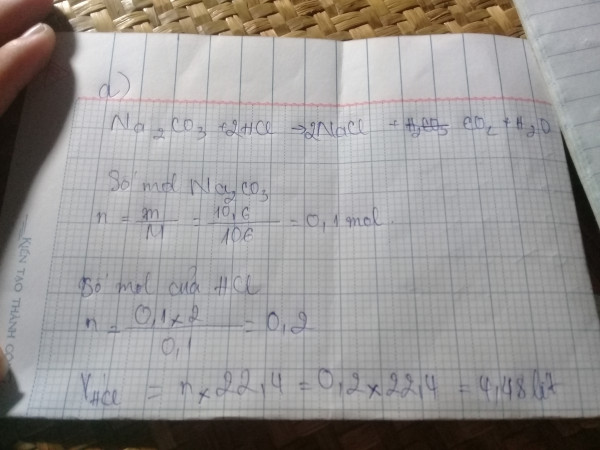 a)
Na2CO3 + 2HCl → 2NaCl + H2CO3 CO2 + H2O
Số mol Na2CO3
n = m/M = 10,6/106 = 0,1 mol.
Số mol của HCl
n = 0,1 x 2 / 0,1 = 0,2
VHCl = n x 22,4 = 0,2 x 22,4 = 4,48 lít
KIẾN TẠO THÀNH